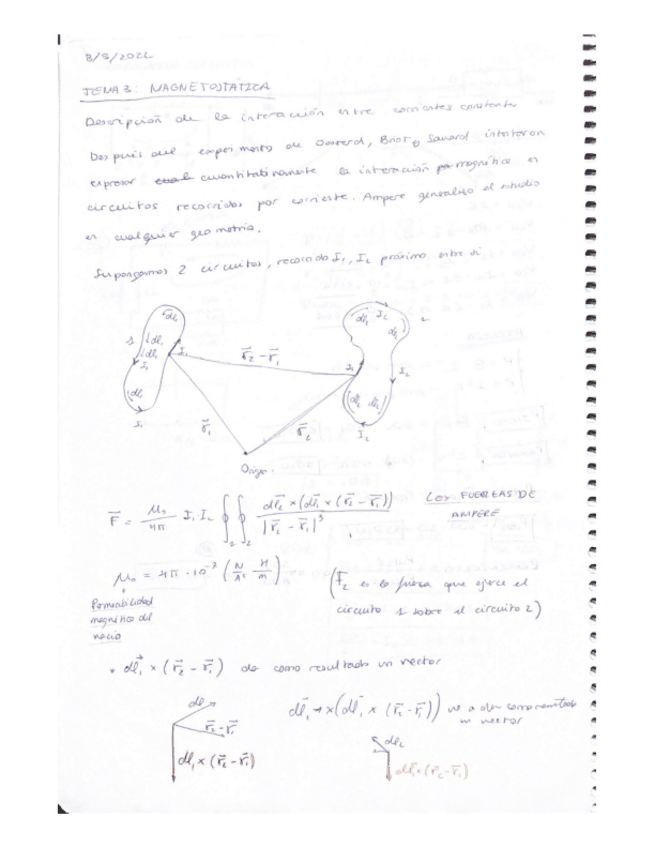 3/5/2022
TEMA 3: MAGNETOSTÁTICA
Descripción de la interacción entre corrientes constantes
Después del experimento de Oesterd, Biot y Savard intentaron
expresar cuantitativamente la interacción magnética en
circuitos recorridos por corriente. Ampere generalizó el estudio
en cualquier geometría.
Supongamos 2 circuitos, recorrido I₁, I₂ próximo entre sí
dl₁ dl₂ I₂ 2
1 dl₁ I₁ r⃗₂ - r⃗₁ I₂
I₁ r⃗₁ r⃗₂ I₂
Origen
F⃗ = μ₀/4π I₁ I₂ ∮∮ dl⃗₂ × (dl⃗₁ × (r⃗₂ - r⃗₁)) / |r⃗₂ - r⃗₁|³ LOS FUERZAS DE
AMPERE
μ₀ = 4π · 10⁻⁷ (N/A² H/m) (F⃗₂ es la fuerza que ejerce el
circuito 1 sobre el circuito 2)
Permeabilidad
magnética del
vacío
• dl⃗₁ × (r⃗₂ - r⃗₁) da como resultado un vector
dl₁ × (dl₁ × (r⃗₂ - r⃗₁)) va a dar como resultado
un vector
dl
r⃗₂ - r⃗₁
dl₁ × (r⃗₂ - r⃗₁)
dl₂
dl₁ × (r⃗₂ - r⃗₁)